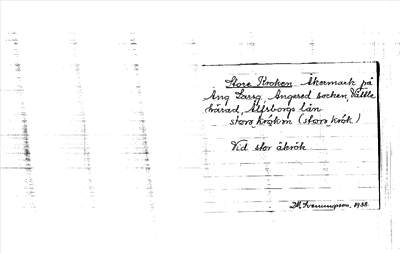 Store Kroken Åkermark på
Äng Angered socken, Vättle
härad, Älfsborgs län
stora krókɐn (stora krók)
Vid stor åkrök
1938.